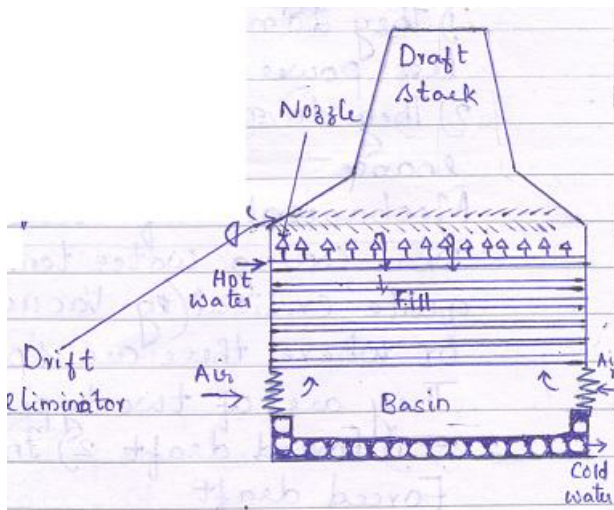 Draft
stack
Nozzle
Hot
water
Fill
Drift
eliminator
Air
Air
Basin
Cold
water